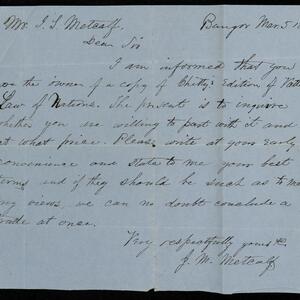 Mr. I. S. Metcalf. Bangor Mar. 5
Dear Sir
I am informed that you
are the owner of a copy of Chitty's Edition of
Law of Nations. The present is to inquire
whether you are willing to part with it and
at what price. Please write at your early
convenience and state to me your best
terms and if they should be such as to
my views, we can no doubt conclude a
trade at once.
Very respectfully yours &c.
J. M. Metcalf